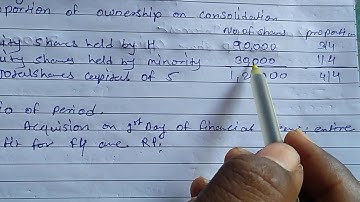 oportion of ownership on consolidation
No. of share proportion
uity shares held by H 90,000 3/4
uity shares held by minority 30,000 1/4
Total shares capital of S 1,20,000 4/4
io of period.
Acquision on 1st Day of financial entire
fit for FY are RP: